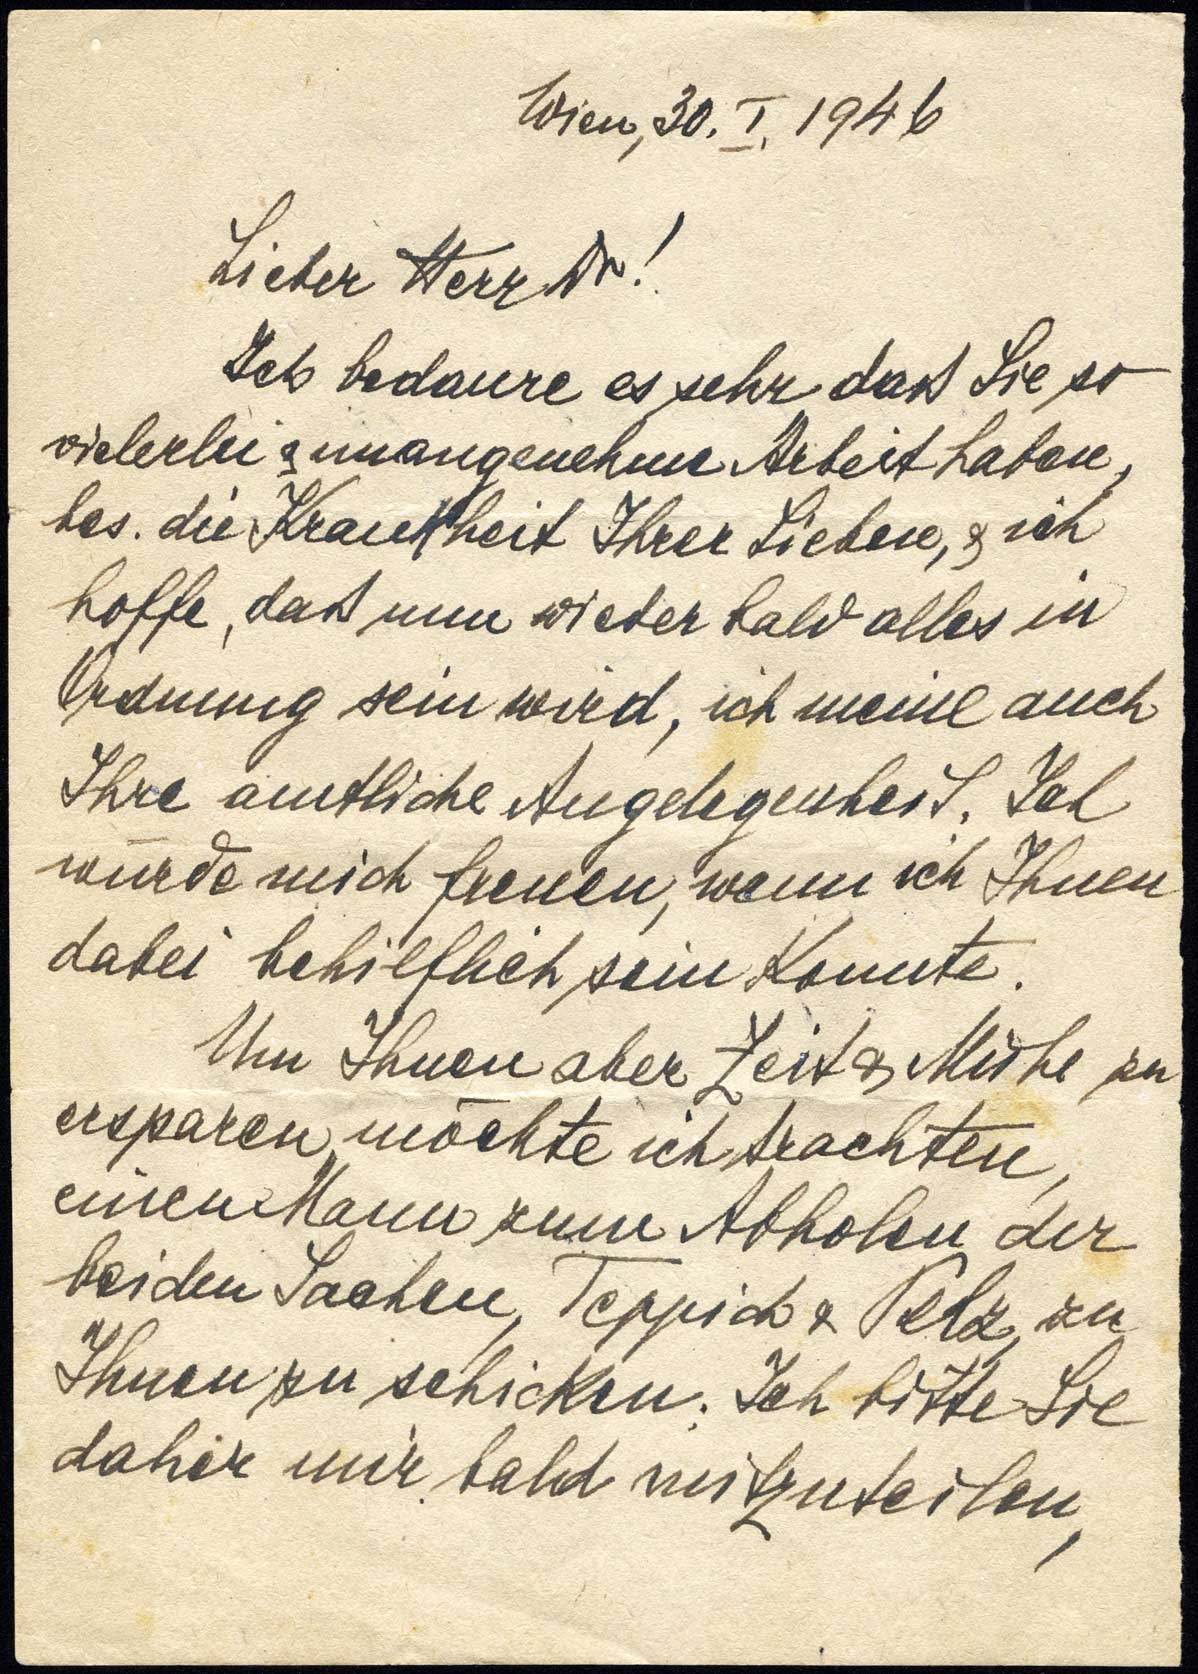 Wien, 30. I. 1946
Lieber Herr Dr!
Ich bedaure es sehr daß Sie so
vielerlei & unangenehme Arbeit haben,
bes. die Krankheit Ihrer Lieben, & ich
hoffe, daß nun wieder bald alles in
Ordnung sein wird, ich meine auch
Ihre amtliche Angelegenheit. Ich
würde mich freuen, wenn ich Ihnen
dabei behilflich sein konnte.
Um Ihnen aber Zeit & Mühe zu
ersparen, möchte ich trachten,
einen Mann zum Abholen der
beiden Sachen, Teppich & Pelz, zu
Ihnen zu schicken. Ich bitte Sie
daher mir bald mitzuteilen,